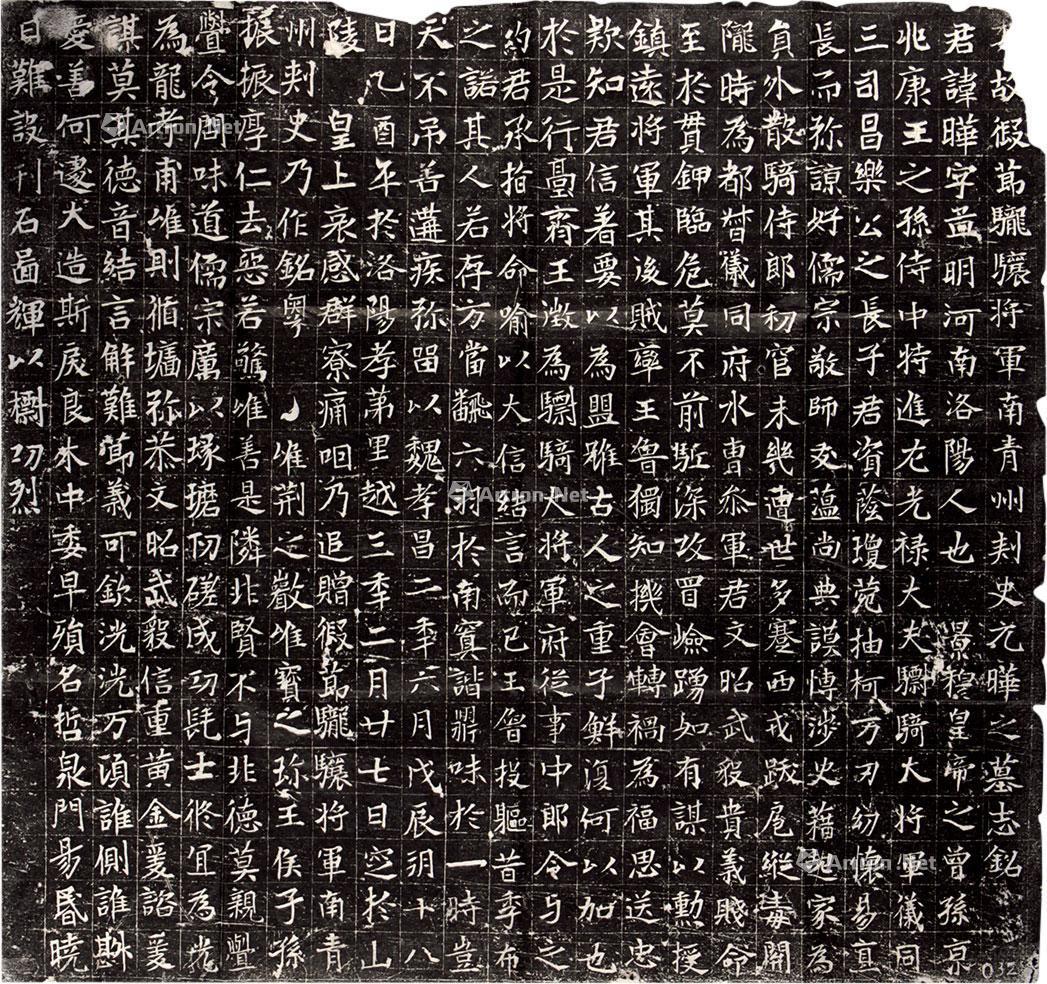 故假節龍驤將軍南青州刾史元曄之墓志銘
君諱曄字茴明河南洛陽人也 景穆皇帝之曾孫京
兆康王之孫侍中特進左光祿大夫驃騎大將軍儀同
三司昌樂公之長子君資蔭瓊菀抽柯万刃紛懷易直
長而弥諒好儒宗敬師友薀尚典謨博涉史藉起家為
員外散騎侍郎初官未幾遭世多蹇西戎跋扈縱毒開
隴時為都督儀同府水曹叅軍君文昭武毅貴義賤命
至於貫鉀臨危莫不前駈深攻冒嶮踴如有謀以勳授
鎮遠將軍其後賊率王魯獨知機會轉禍為福思送忠
欵知君信著要以為盟雖古人之重子鮮復何以加也
於是行臺齊王徵為驃騎大將軍府從事中郎令与之
約君承指將命喻以大信結言而已王魯投軀昔季布
之諾其人若存方當飜六翮於南冥諧鼎味於一時豈
天不弔善遘疾弥留以魏孝昌二年六月戊辰朔十八
日乙酉卒於洛陽孝弟里越三年二月廿七日窆於山
陵 皇上哀感群寮痛咽乃追贈假節龍驤將軍南青
州刾史乃作銘粤 惟荆之巘惟寶之珎王侯子孫
振振淳仁去惡若驚唯善是隣非賢不与非德莫親亹
亹令問味道儒宗厲以琢切磋成功髦士攸宜為光
為龍孝甫唯則循墉弥恭文昭武毅信重黄金爰諮爰
謀莫其德音結言解難節義可欽洸洸万頃誰側誰斟
愛善何遽大造斯戾良木中委早殞名哲泉門易昏曉
日難設刊石啚輝以樹功烈
032
Artron.Net
Artron.Net
Artron.Net
Artron.Net
Artron.Net